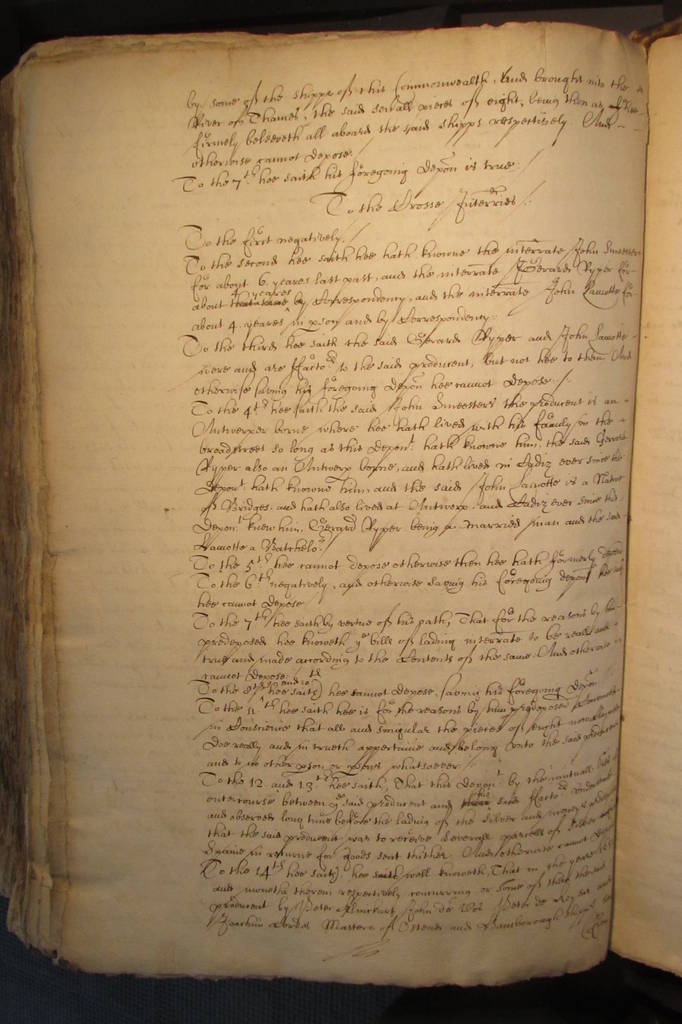 by some of the shipps of this Commonwealth, And brought into the
River of Thames, the said severall pieces of eight, being then as hee
firmely beleeveth all aboard the said shipps respectively And
otherwise cannot depose.
To the 7th. hee saith his foregoing depon is true./
To the Crosse Interries /.
To the first negatively./
To the second hee saith hee hath knowne the interrate John Smeesters
for about 6. yeares last past, and the interrate Gerard Ryper for
about 4 yeares by Correspondency, and the interrate John Lamotte for
about 4. yeares in pson and by Correspondency.
To the third hee saith the said Gerard Ryper and John Lamotte
were and are Factors to the said producent, but not hee to them And
otherwise saving his foregoing depon hee cannot depose./.
To the 4th hee saith the said John Smeesters the producent is an
Antwerper borne where hee hath lived with his family in the
broadstreet so long as this depont. hath knowne him. the said Gerard
Ryper also an Antwerp borne, and hath lived in Cadiz ever since this
depont hath knowne him, and the said John Lamotte is a Native
of Bridges. and hath also lived at Antwerp. and Cadiz ever since this
depont knew him, Gerard Ryper being a married man and the said
Lamotte a Batchelor./
To the 5th hee cannot depose otherwise then hee hath formerly deposed
To the 6th negatively, and otherwise saving his foregoing depon hee saith
hee cannot depose
To the 7th hee saith by vertue of his oath, That for the reasons by him
predeposed hee knoweth ye bills of lading interrate to be reall and
true and made according to the Contents of the same. And otherwise
cannot depose.
To the 8th and 10th hee saith hee cannot depose, saving his foregoing depon
To the 11th hee saith hee is for the reasons by him predeposed
in Conscience that all and singular the pieces of eight
doe really and in trueth appertaine and belong unto the said producent
and to no other pson or psons whatsoever./
To the 12 and 13th. hee saith, That this depont by the mutuall
entercourse betweene ye said producent and his said Factors
and observed long time before the lading of the silver and moneys
that the said producent was to receive severall parcells of silver
Spaine in returne for goods sent thither. And otherwise cannot depose
To the 14th hee saith hee well knoweth, That in the yeare
and moneths therein respectively concurring or some of them
producent by Peter John de Peter de
Joachim Masters of Ostend and Bamborough shipps